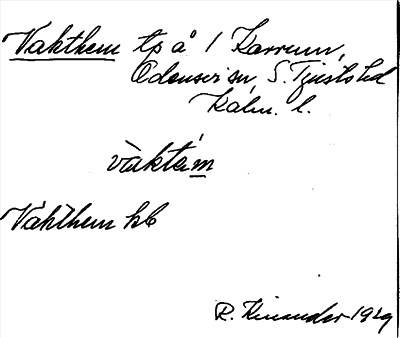 Vakthem tp å 1 Karrum,
Odensvi sn, S. Tjusts hd
Kalm. l.
vàktém
Vakthem hb
R. Kinander 1929